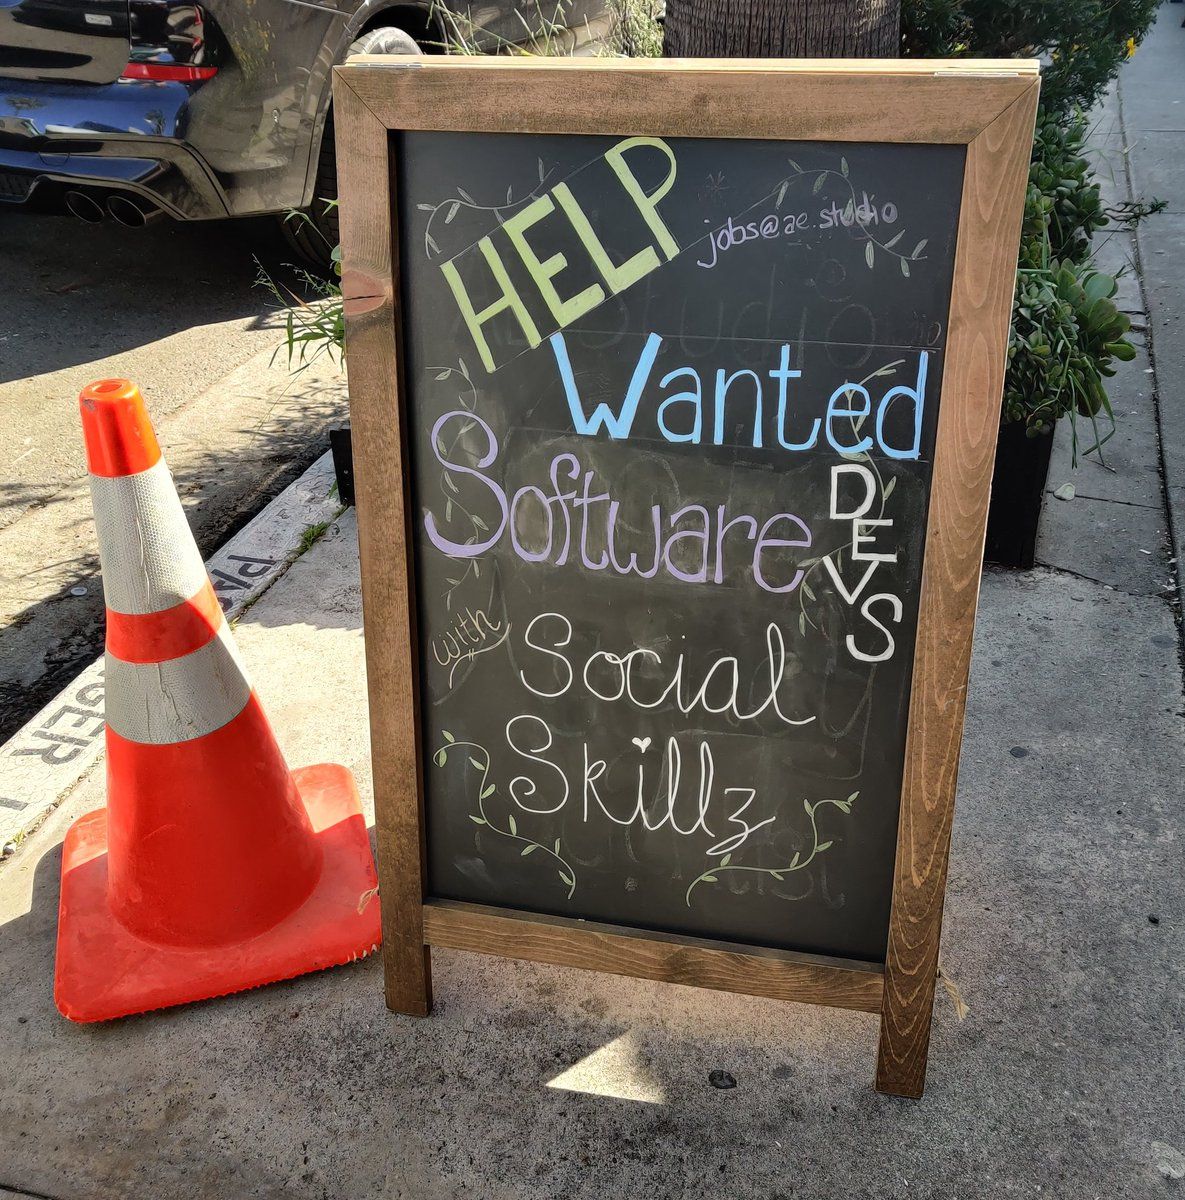 HELP
jobs@ae.studio
Wanted
Software
DEVS
with
Social
Skillz